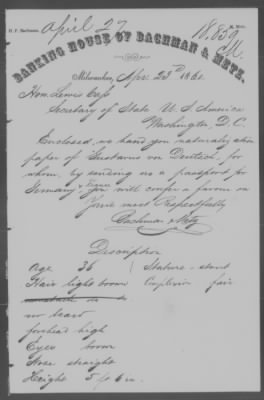 April 27
18,839
H. F. Bachman.
H. Metz.
BANKING HOUSE OF BACHMAN & METZ.
Milwaukee, Apr. 23d 1860.
Hon. Lewis Cass
Secretary of State U. S. America
Washington, D. C.
Enclosed we hand you naturalization
paper of Gustavus von Deutsch, for
whom, by sending us a passport for
Germany & France you will confer a favour on
Yours most Respectfully
Bachman & Metz
Description
Age 36
Stature - stout
Hair light brown
Complexion fair
no beard
forehead high
Eyes brown
Nose straight
Height 5 ft 6 in.